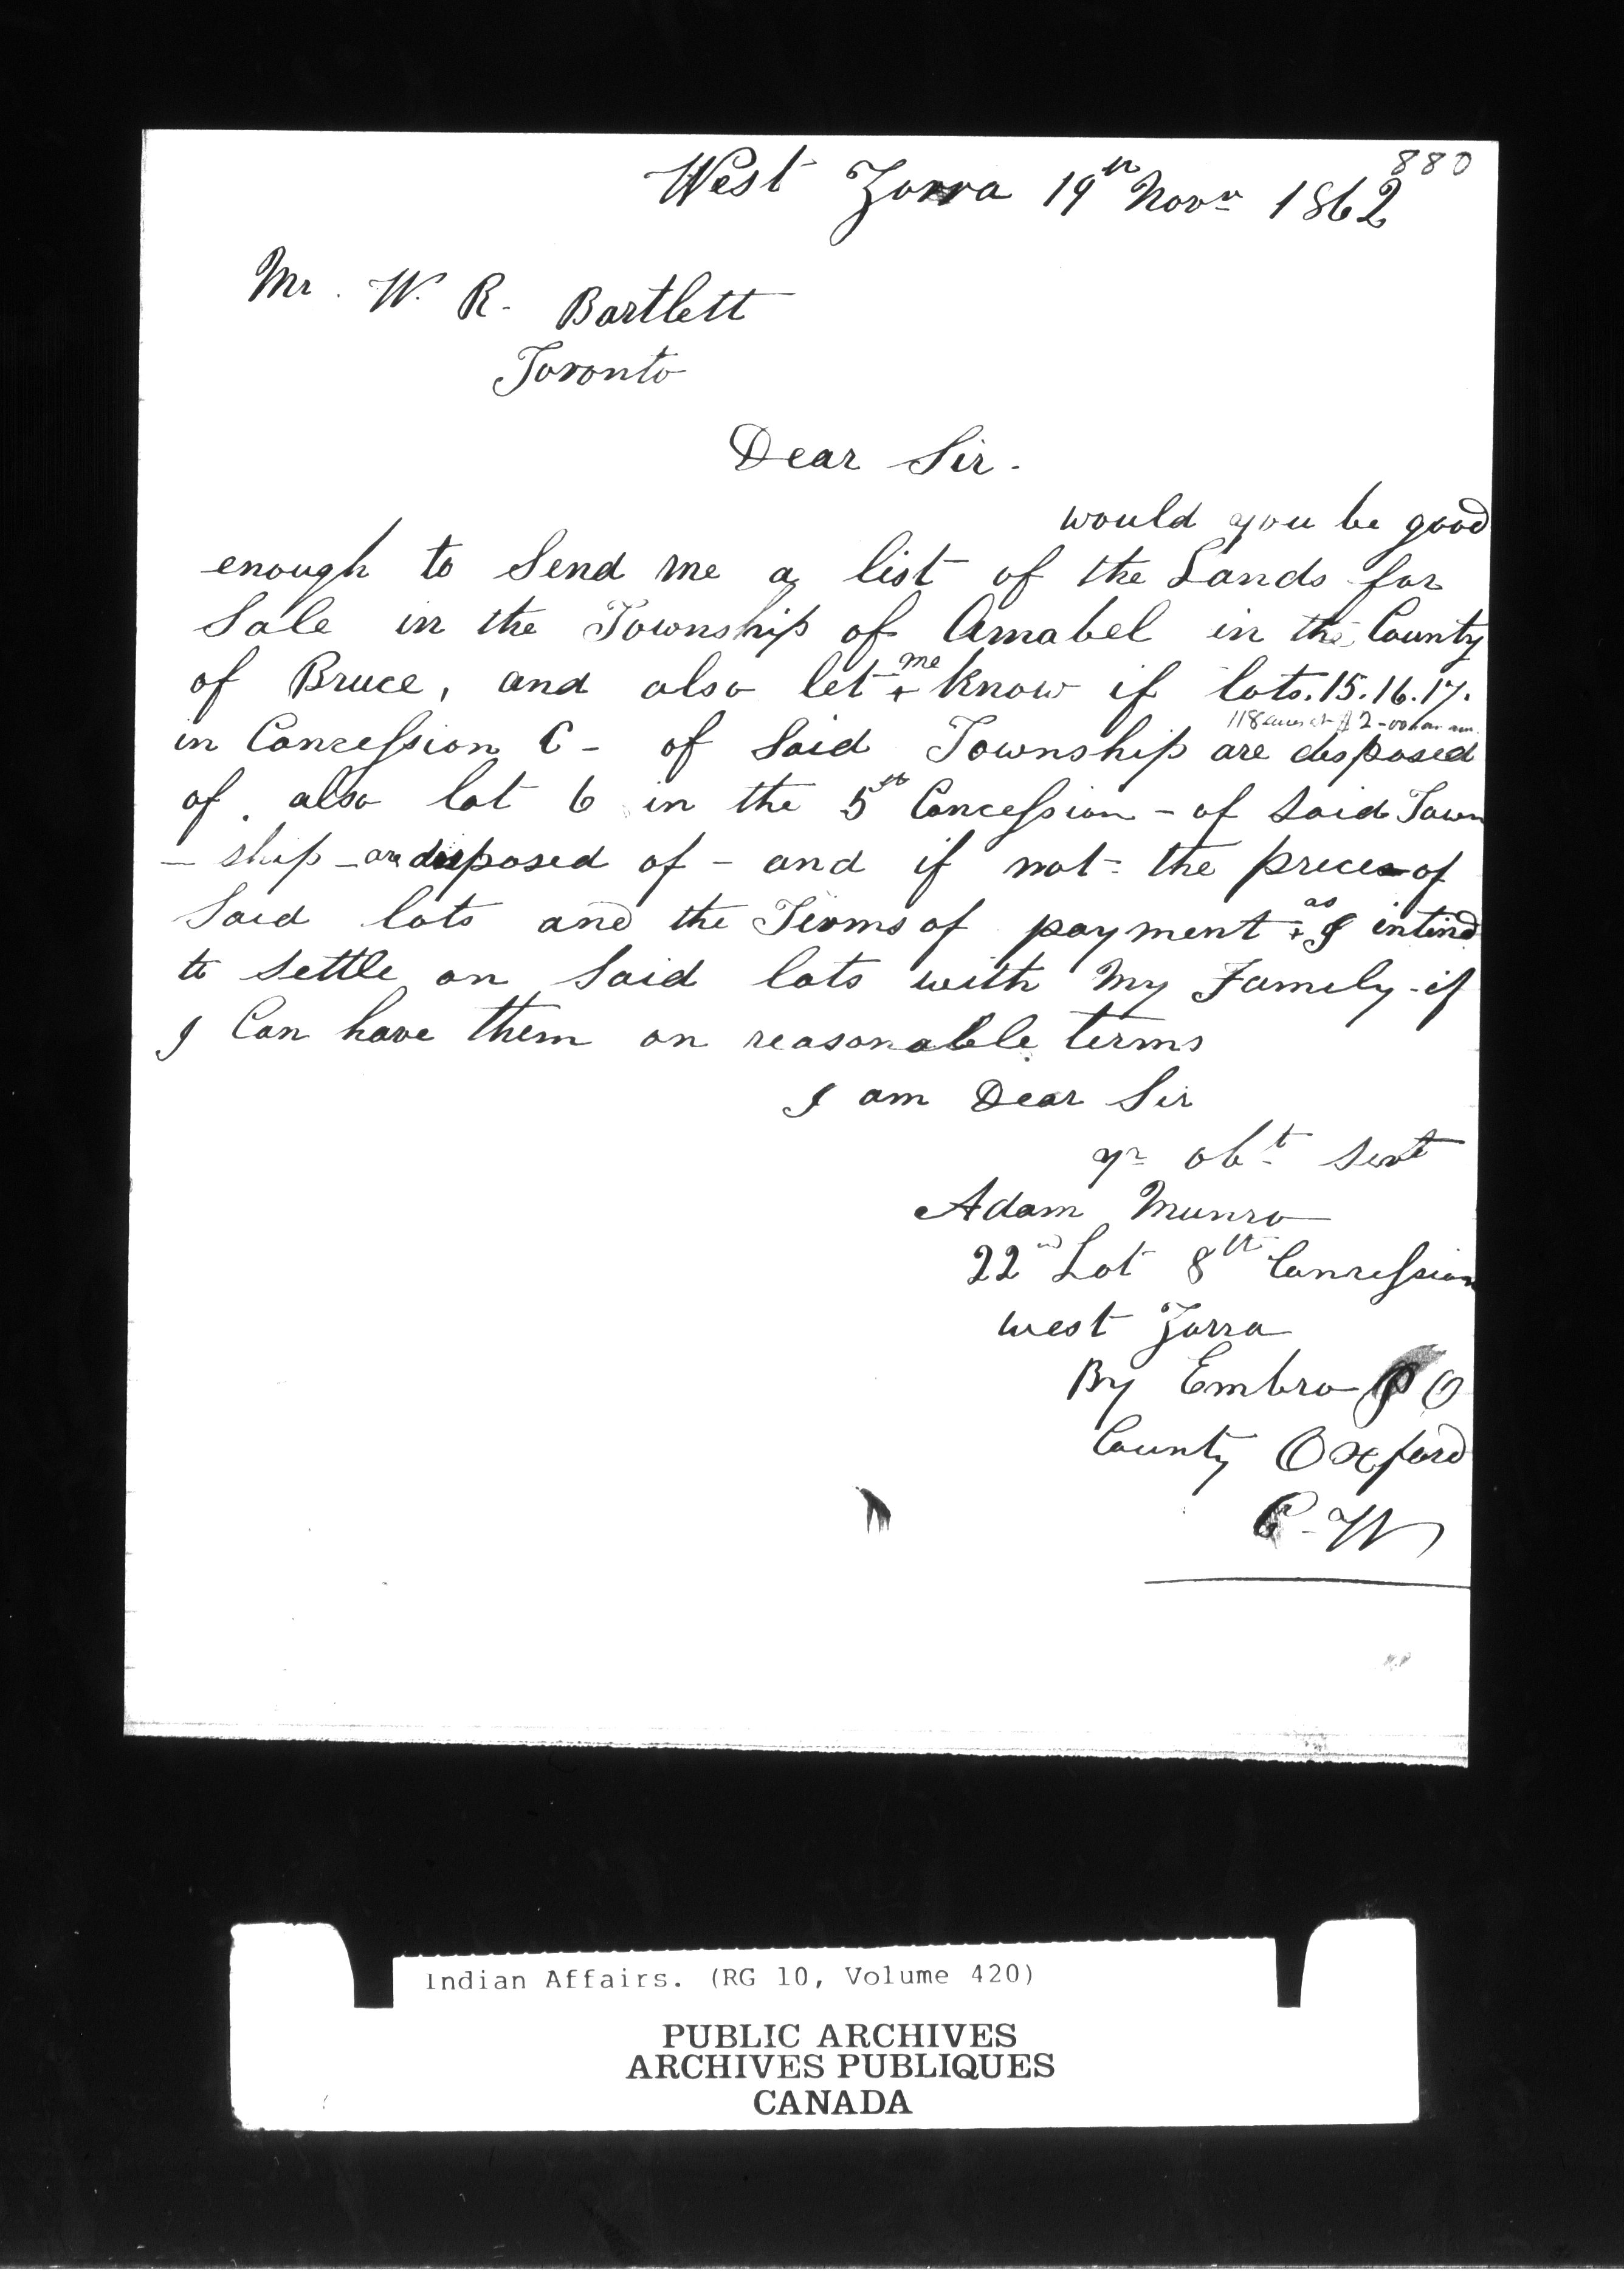 880
West Zorra 19th Novr 1862
Mr. W. R. Bartlett
Toronto
Dear Sir.
would you be good
enough to Send me a list of the Lands for
Sale in the Township of Amabel in the County
of Bruce, and also let me + know if lots. 15. 16. 17.
118 acres at $2-00
in Concession C - of Said Township are disposed
of. also lot 6 in the 5th Concession - of said Town
- ship - are disposed of - and if not - the prices of
Said lots and the Terms of payment + as I intend
to settle on Said lots with My Family - if
I Can have them on reasonable terms
I am Dear Sir
yr obt Sert
Adam Munro
22nd Lot 8th Concession
west Zorra
By Embro P O
County Oxford
C-W
Indian Affairs. (RG 10, Volume 420)
PUBLIC ARCHIVES
ARCHIVES PUBLIQUES
CANADA